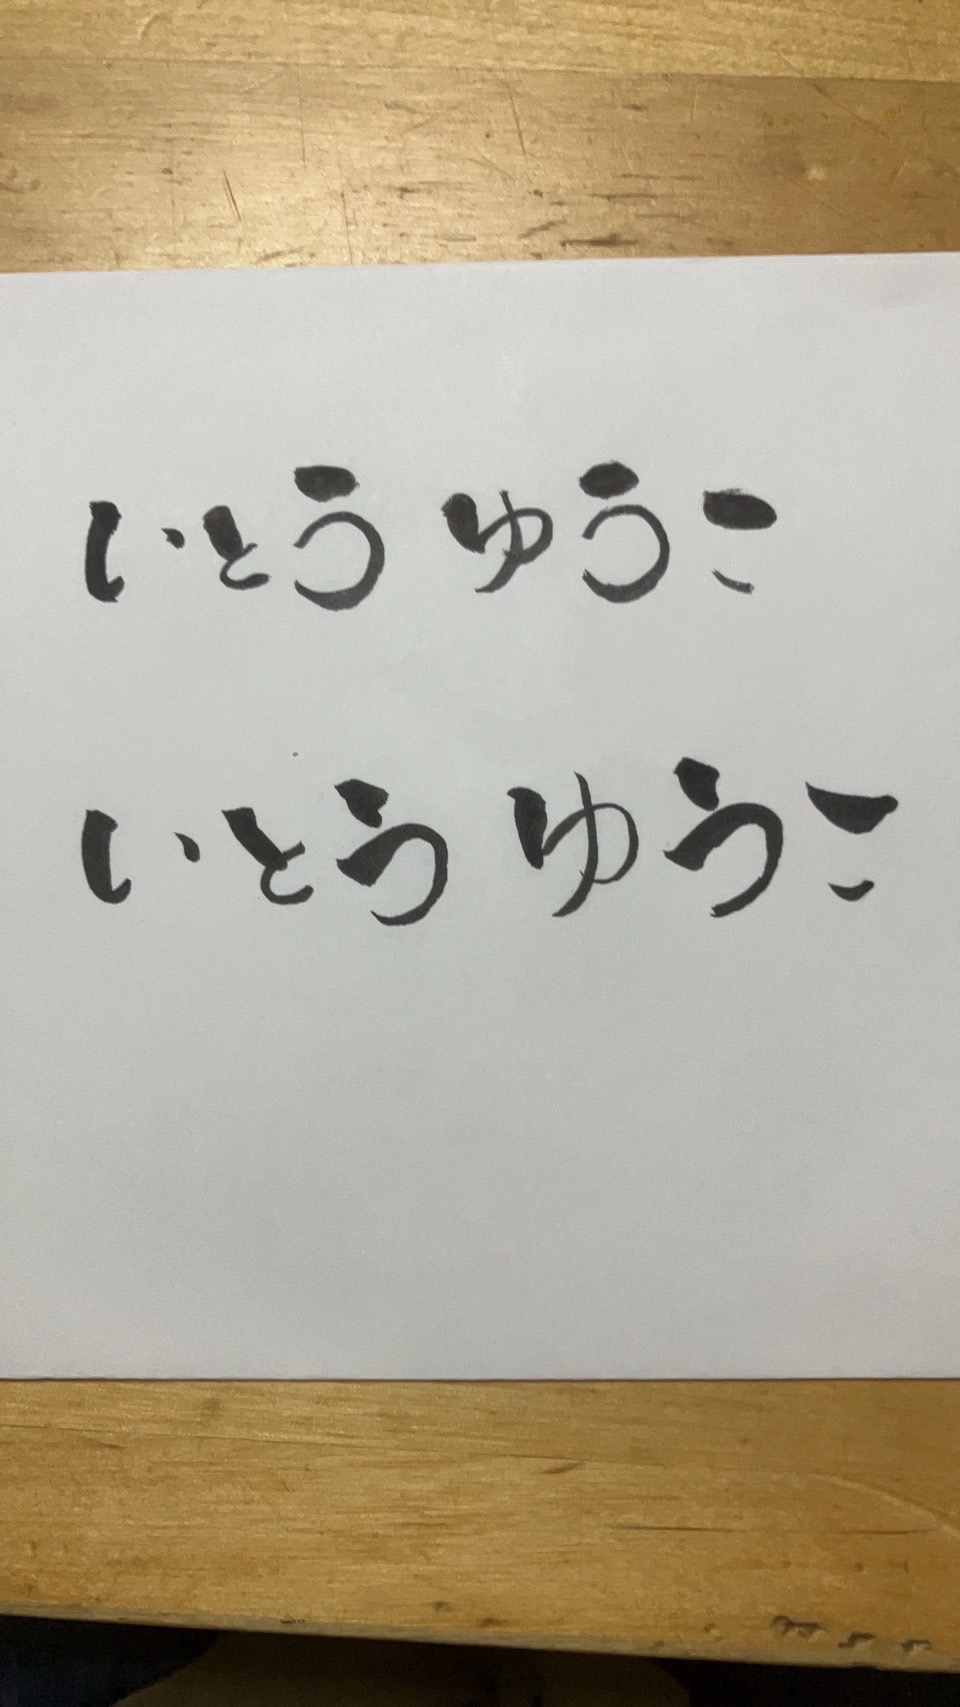 いとう ゆうこ
いとう ゆうこ